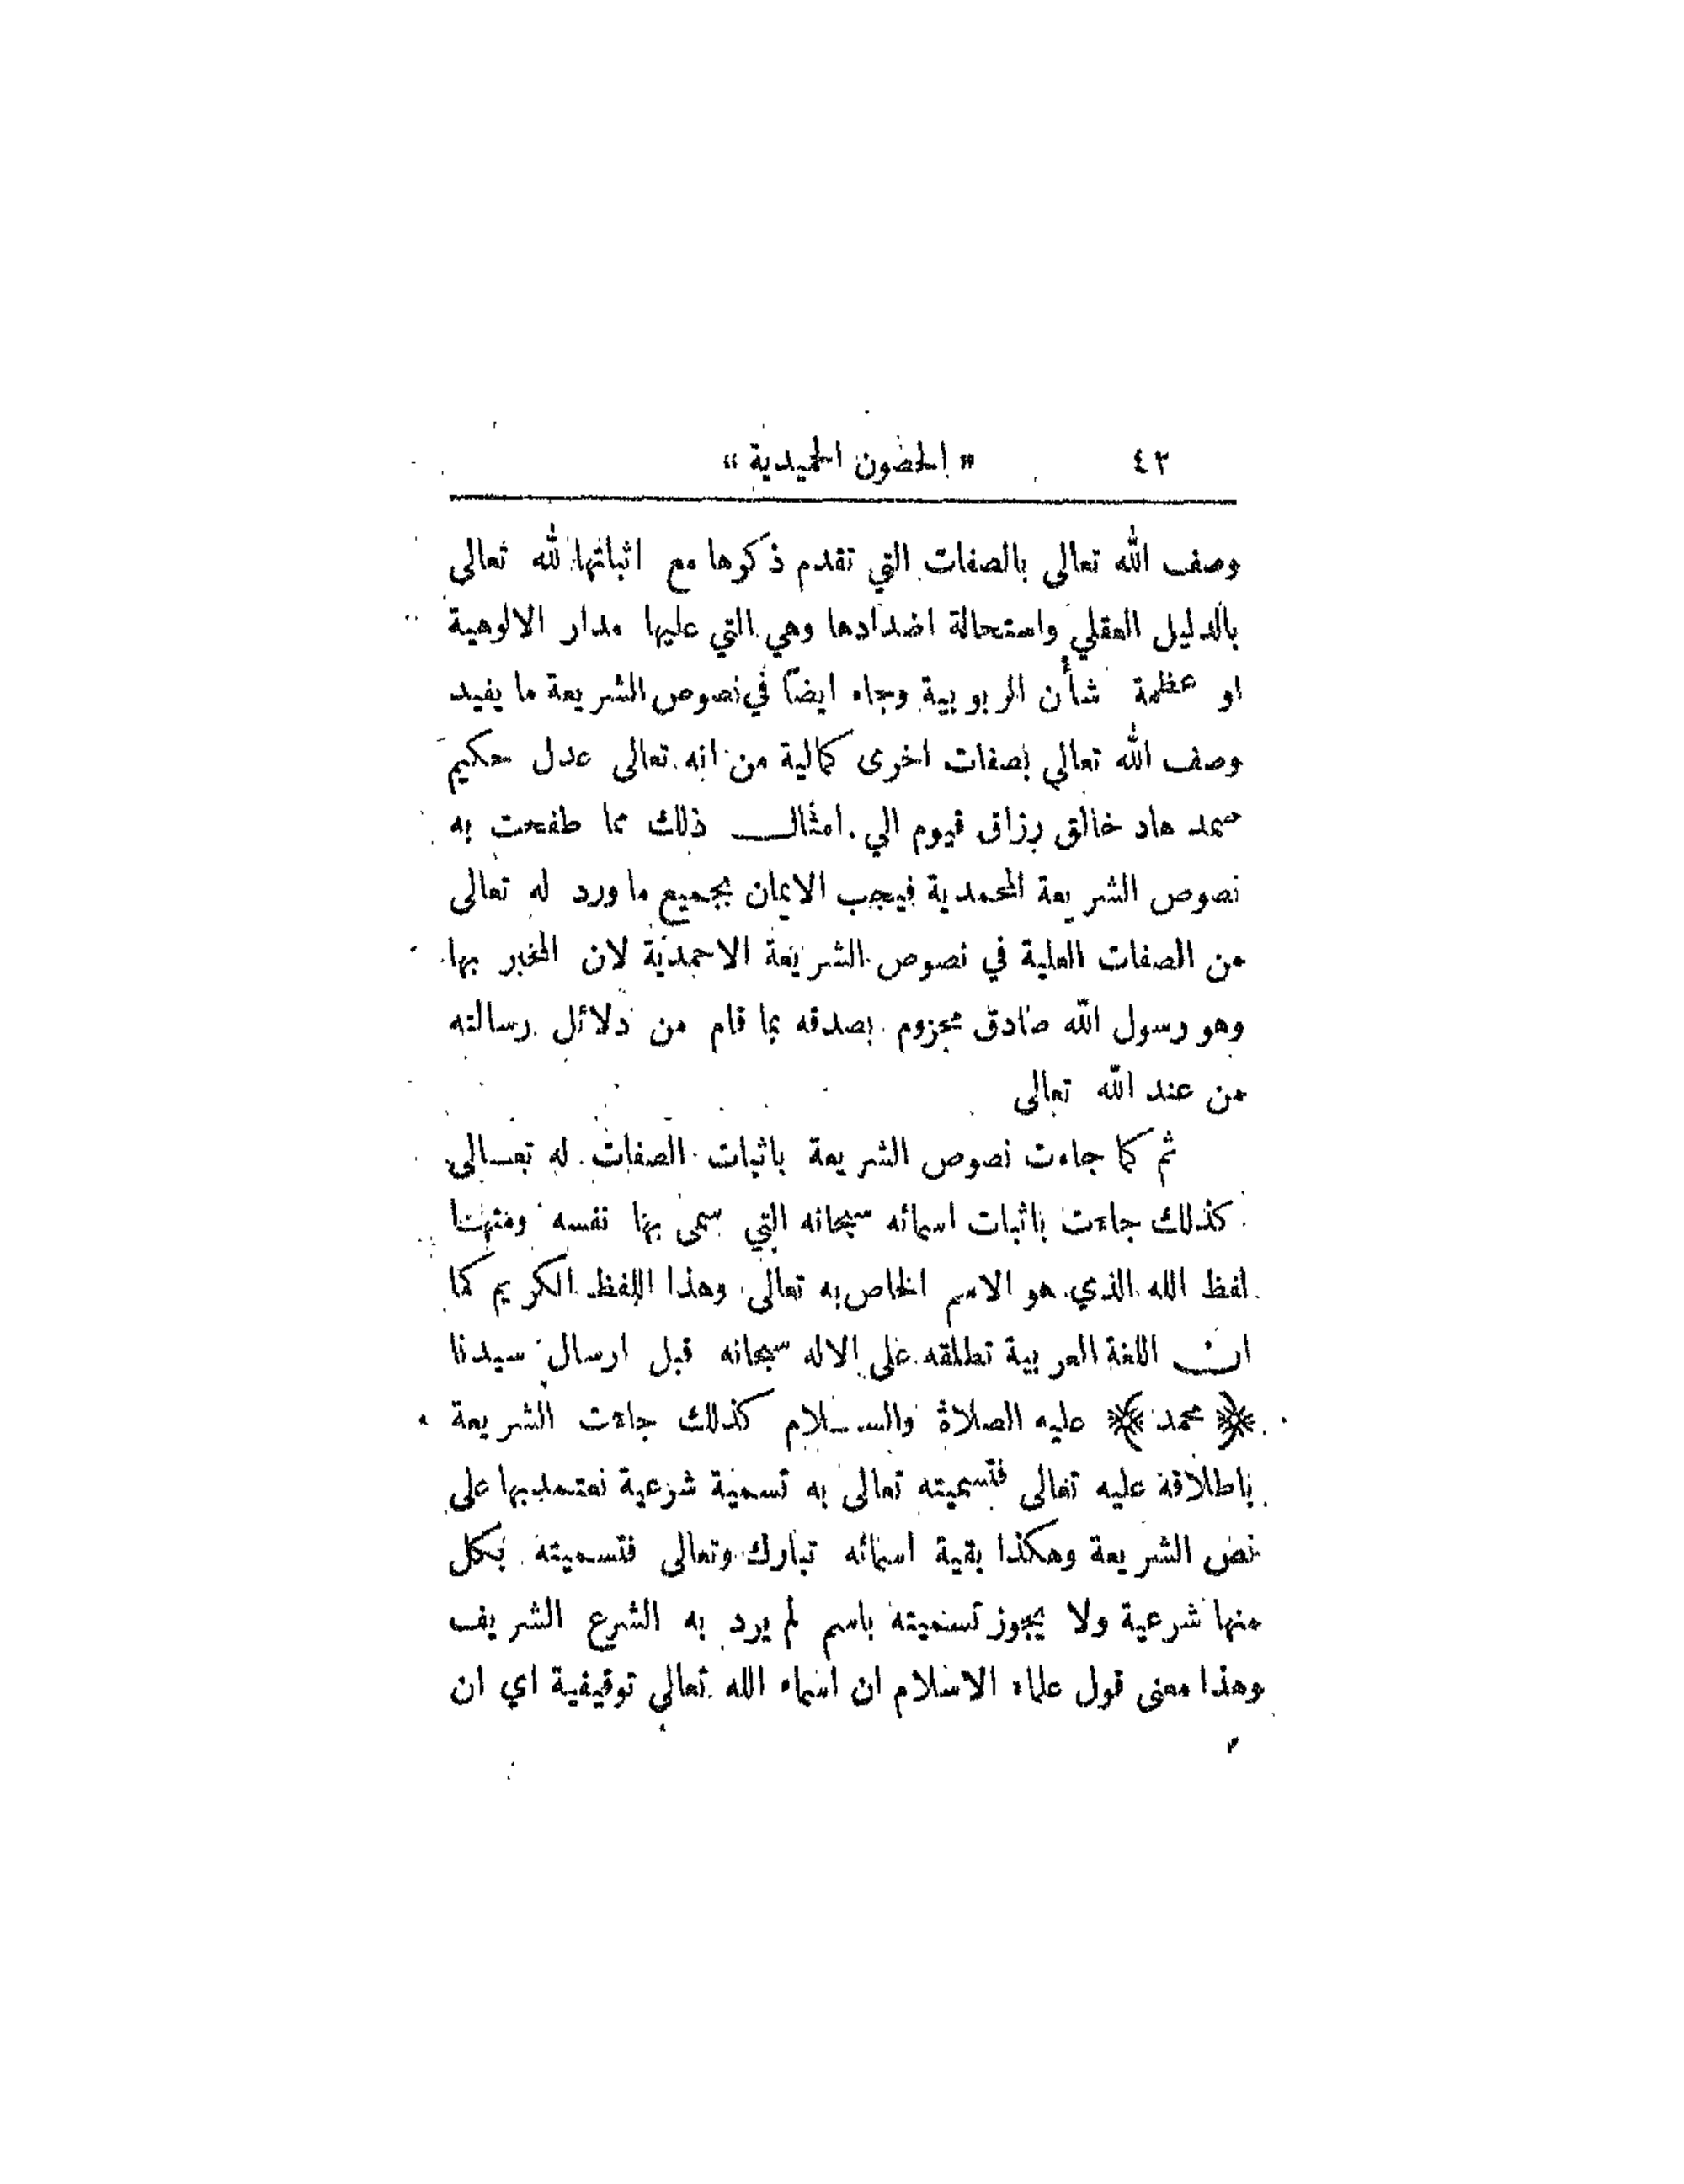 ٤٢ « الحصون الحميدية »
وصف الله تعالى بالصفات التي تقدم ذكرها مع اثباتها لله تعالى
بالدليل العقلي واستحالة اضدادها وهي التي عليها مدار الالوهية
او عظمة شأن الربوبية وجاء ايضاً في نصوص الشريعة ما يفيد
وصف الله تعالى بصفات اخرى كمالية من انه تعالى عدل حكيم
صمد هاد خالق رزاق قيوم الي امثال ذلك مما طفحت به
نصوص الشريعة المحمدية فيجب الايمان بجميع ما ورد له تعالى
من الصفات العلية في نصوص الشريعة الاحمدية لان المخبر بها
وهو رسول الله صادق مجزوم بصدقه بما قام من دلائل رسالته
من عند الله تعالى
ثم كما جاءت نصوص الشريعة باثبات الصفات له تعالى
كذلك جاءت باثبات اسمائه سبحانه التي سمى بها نفسه ومنها
لفظ الله الذي هو الاسم الخاص به تعالى وهذا اللفظ الكريم كما
ان اللغة العربية تطلقه على الاله سبحانه قبل ارسال سيدنا
﴿ محمد ﴾ عليه الصلاة والسلام كذلك جاءت الشريعة
باطلاقة عليه تعالى فتسميته تعالى به تسمية شرعية نعتمد بها على
نص الشريعة وهكذا بقية اسمائه تبارك وتعالى فتسميته بكل
منها شرعية ولا يجوز تسميته باسم لم يرد به الشرع الشريف
وهذا معنى قول علماء الاسلام ان اسماء الله تعالى توقيفية اي ان